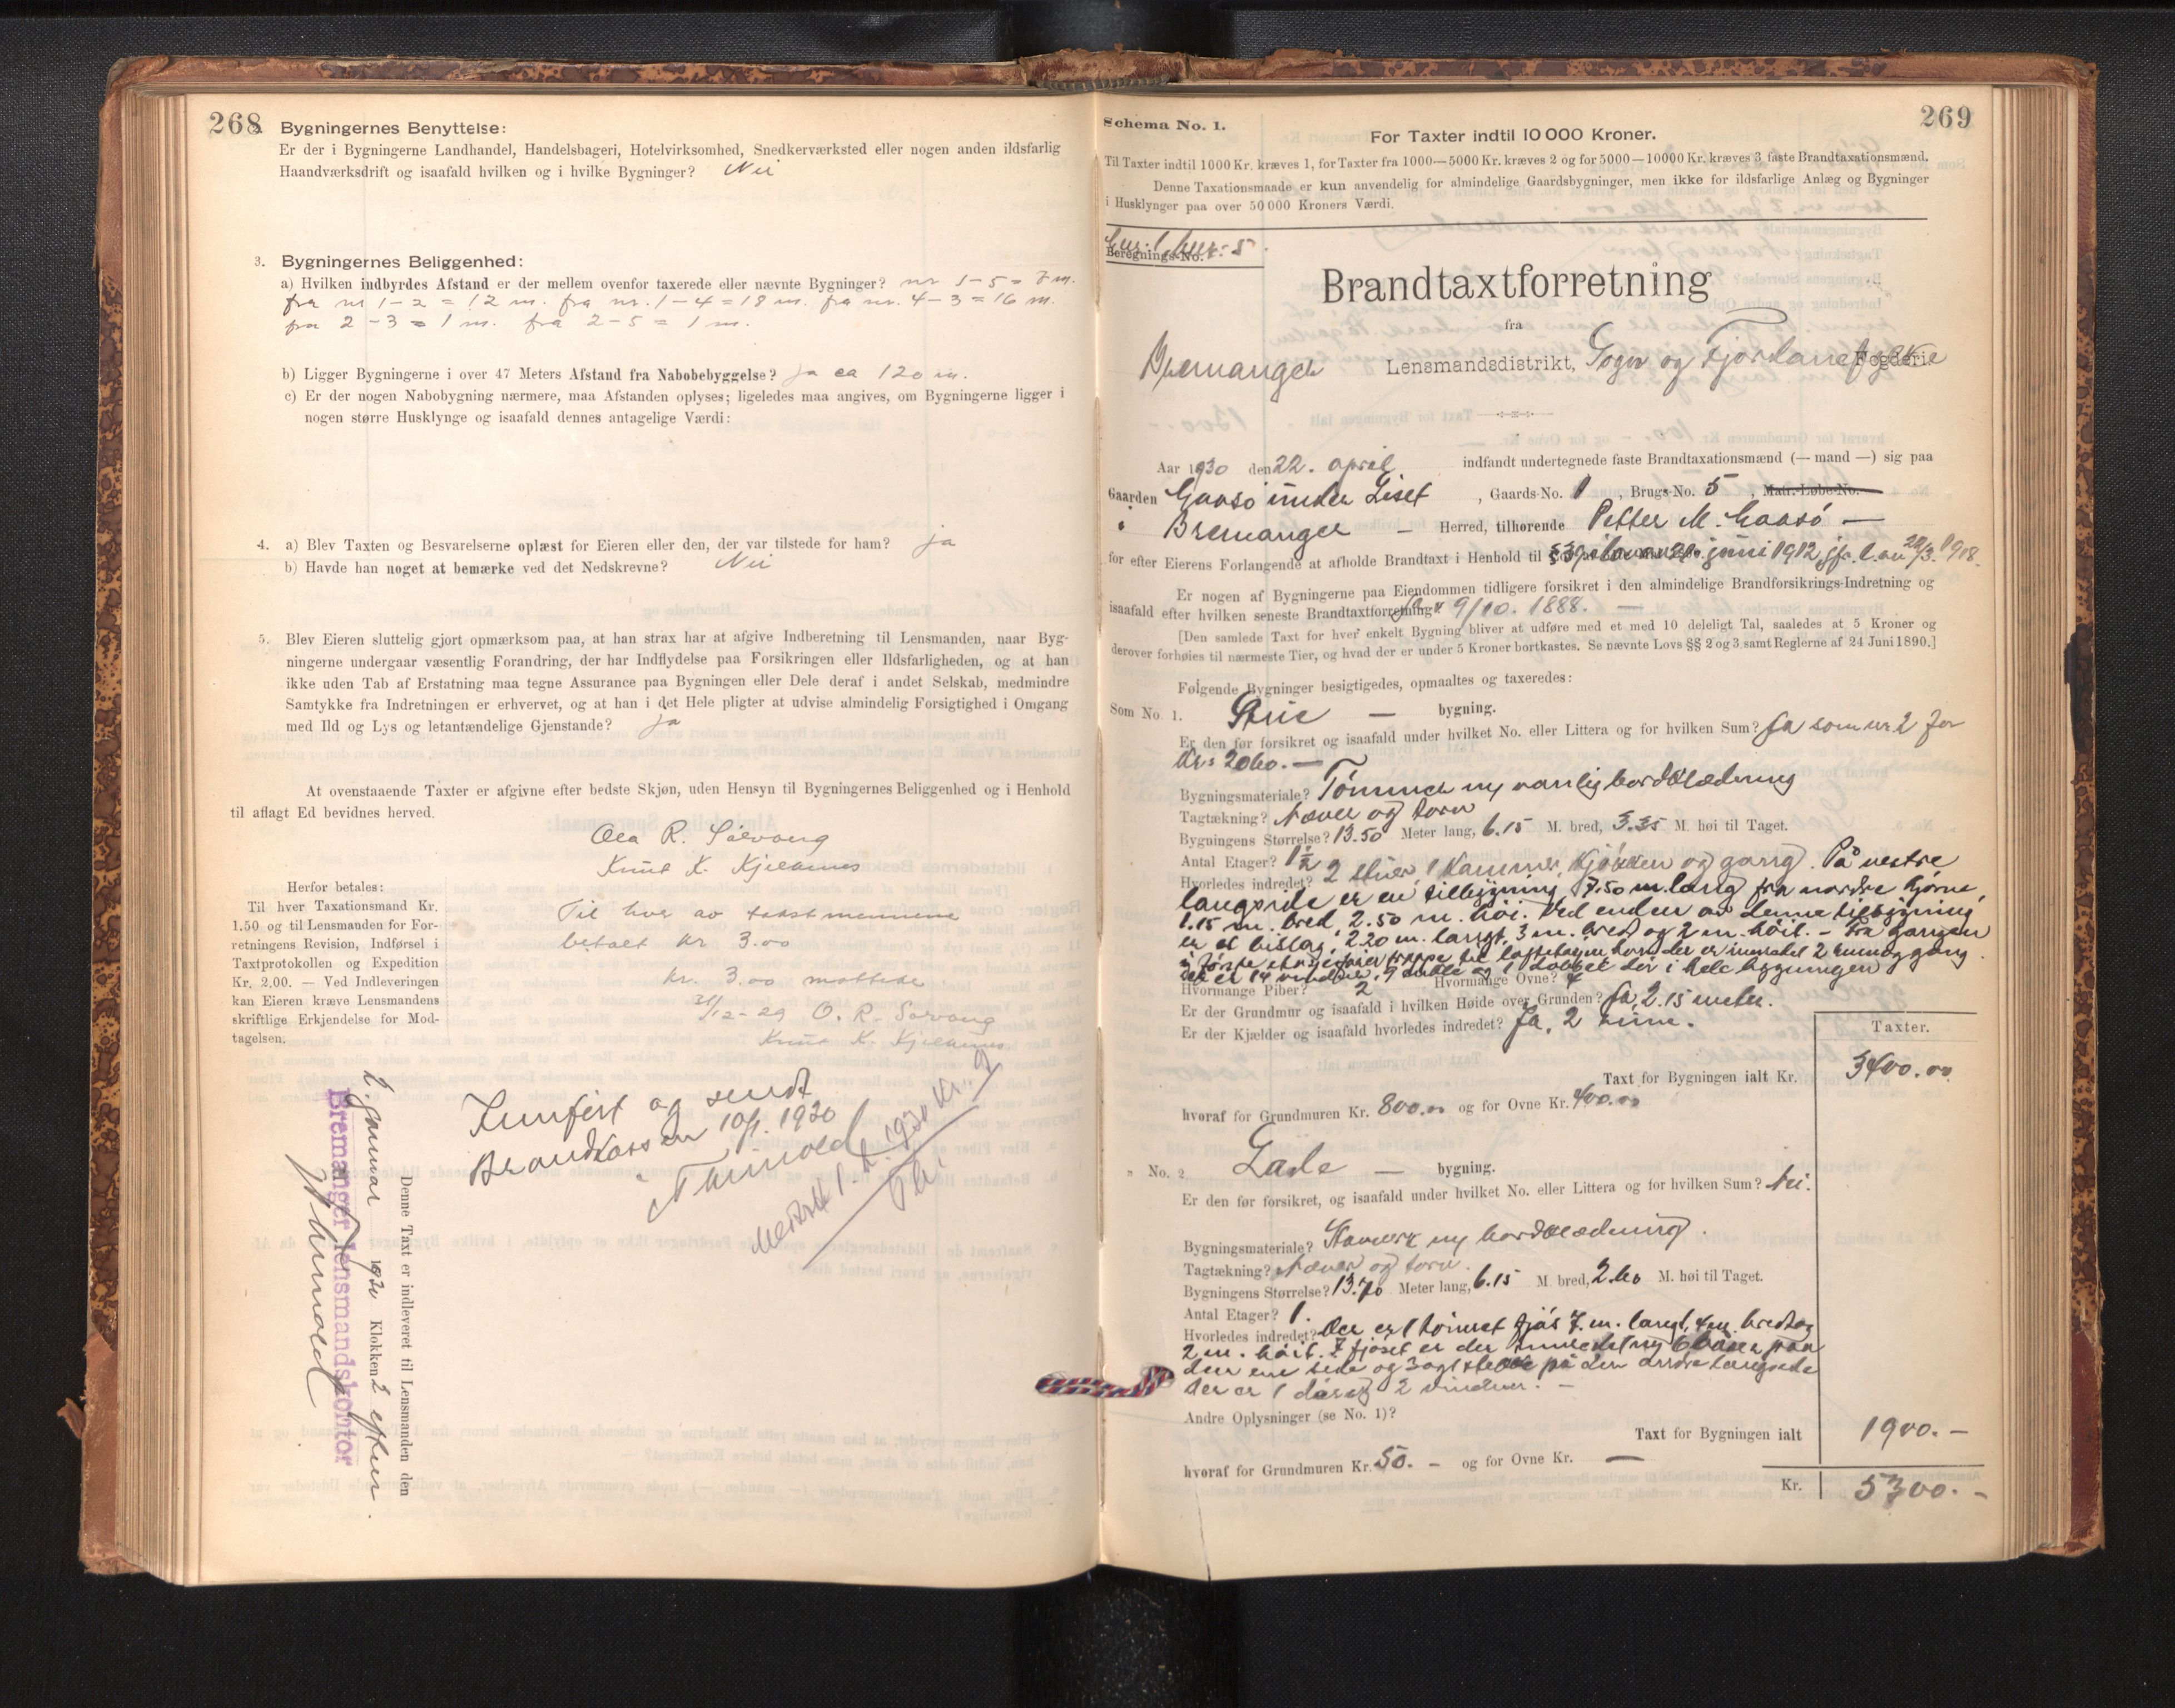 268
2. Bygningernes Benyttelse:
Er der i Bygningerne Landhandel, Handelsbageri, Hotelvirksomhed, Snedkerværksted eller nogen anden ildsfarlig
Haandværksdrift og isaafald hvilken og i hvilke Bygninger? Nei
3. Bygningernes Beliggenhed:
a) Hvilken indbyrdes Afstand er der mellem ovenfor taxerede eller nævnte Bygninger? nr 1-5 = 7 m.
fra nr 1-2 = 12 m. fra nr. 1-4 = 18 m. fra nr. 4-3 = 16 m.
fra 2-3 = 1 m. fra 2-5 = 1 m.
b) Ligger Bygningerne i over 47 Meters Afstand fra Nabobebyggelse? ja ca 120 m.
c) Er der nogen Nabobygning nærmere, maa Afstanden oplyses; ligeledes maa angives, om Bygningerne ligger i
nogen større Husklynge og isaafald dennes antagelige Værdi:
4. a) Blev Taxten og Besvarelserne oplæst for Eieren eller den, der var tilstede for ham? ja
b) Havde han noget at bemærke ved det Nedskrevne? Nei
5. Blev Eieren sluttelig gjort opmærksom paa, at han strax har at afgive Indberetning til Lensmanden, naar Byg-
ningerne undergaar væsentlig Forandring, der har Indflydelse paa Forsikringen eller Ildsfarligheden, og at han
ikke uden Tab af Erstatning maa tegne Assurance paa Bygningen eller Dele deraf i andet Selskab, medmindre
Samtykke fra Indretningen er erhvervet, og at han i det Hele pligter at udvise almindelig Forsigtighed i Omgang
med Ild og Lys og letantændelige Gjenstande? ja
At ovenstaaende Taxter er afgivne efter bedste Skjøn, uden Hensyn til Bygningernes Beliggenhed og i Henhold
til aflagt Ed bevidnes herved.
Ola R. Sørvang
Knut K. Kjelanes
Herfor betales:
Til hver Taxationsmand Kr.
1.50 og til Lensmanden for For-
retningens Revision, Indførsel i
Taxtprotokollen og Expedition
Kr. 2,00. — Ved Indleveringen
kan Eieren kræve Lensmandens
skriftlige Erkjendelse for Mod-
tagelsen.
Til hver av takstmennene
betalt kr 3.00
kr. 3.00 mottat
31/12-29 O. R. Sørvang
Knut K. Kjelanes
Innført og sendt
Brandkassen 10/1. 1930
Denne Taxt er indleveret til Lensmanden den
2. januar 1930 Klokken 2 efter
Bremanger lensmandskontor
269
Schema No. 1.
For Taxter indtil 10 000 Kroner.
Til Taxter indtil 1000 Kr. kræves 1, for Taxter fra 1000—5000 Kr. kræves 2 og for 5000—10000 Kr. kræves 3 faste Brandtaxationsmænd.
Denne Taxationsmaade er kun anvendelig for almindelige Gaardsbygninger, men ikke for ildsfarlige Anlæg og Bygninger
i Husklynger paa over 50 000 Kroners Værdi.
Gnr: 1, bnr: 5.
Beregnings-No.
Brandtaxtforretning
fra
Bremanger Lensmandsdistrikt, Sogn og Fjordane fylke Fogderie
Aar 1930 den 22. april indfandt undertegnede faste Brandtaxationsmænd (— mand —) sig paa
Gaarden Gaasø under Liset, Gaards-No. 1, Brugs-No. 5, Matr.-Løbe-No.
i Bremanger — Herred, tilhørende Petter M. Gaasø —
for efter Eierens Forlangende at afholde Brandtaxt i Henhold til juni 1912, jfr. l. av 22/3. 1918.
Er nogen af Bygningerne paa Eiendommen tidligere forsikret i den almindelige Brandforsikrings-Indretning og
isaafald efter hvilken seneste Brandtaxtforretning? 9/10. 1888. —
[Den samlede Taxt for hver enkelt Bygning bliver at udføre med et med 10 deleligt Tal, saaledes at 5 Kroner og
derover forhøies til nærmeste Tier, og hvad der er under 5 Kroner bortkastes. Se nævnte Lovs §§ 2 og 3 samt Reglerne af 24 Juni 1890.]
Følgende Bygninger besigtigedes, opmaaltes og taxeredes:
Som No. 1. Stue — bygning.
Er den før forsikret og isaafald under hvilket No. eller Littera og for hvilken Sum? Ja som nr 2 for
Kr: 2060. —
Bygningsmateriale? Tømmer ny vanlig bordklædning
Tagtækning? Næver og torv
Bygningens Størrelse? 13.50 Meter lang, 6.15 M. bred, 3.35 M. høi til Taget.
Antal Etager? 1½
Hvorledes indredet? 2 stuer, 1 kammer, kjøkken og gang. På vestre
langside er en tilbygning 7.50 m. lang fra nordre hjørne,
1.15 m. bred, 2.50 m. høi. Ved enden av denne tilbygning
er et bislag, 2.20 m. langt, 3 m. bred og 2 m. høit. – Fra gangen
i første etasje fører trappe til loftetasjen hvor der er innredet 2 rum og gang.
Det er 14 vinduer, 9 enkle og 1 dobbel dør i hele bygningen
Hvormange Piber? 2 Hvormange Ovne? 4
Er der Grundmur og isaafald i hvilken Høide over Grunden? Ja, 2.15 meter.
Er der Kjælder og isaafald hvorledes indredet? Ja, 2 rum.
Taxter.
Taxt for Bygningen ialt Kr. 3400.00
hvoraf for Grundmuren Kr. 800.00 og for Ovne Kr. 400.00
" No. 2 Lade — bygning.
Er den før forsikret, og isaafald under hvilket No. eller Littera og for hvilken Sum? Nei.
Bygningsmateriale? Stavverk ny bordklædning.
Tagtækning? Næver og torv.
Bygningens Størrelse? 13.70 Meter lang, 6.15 M. bred, 2.60 M. høi til Taget.
Antal Etager? 1.
Hvorledes indredet? Der er 1 tømret fjøs 7. m. langt, 4 m. bred og
2 m. høit. I fjøset er der innredet ny 6 båser paa
den ene side og 3 på den andre langside
Der er 1 dør og 2 vinduer. —
Andre Oplysninger (se No. 1)?
Taxt for Bygningen ialt 1900. —
hvoraf for Grundmuren Kr. 50. — og for Ovne Kr. —
Kr. 5300. —